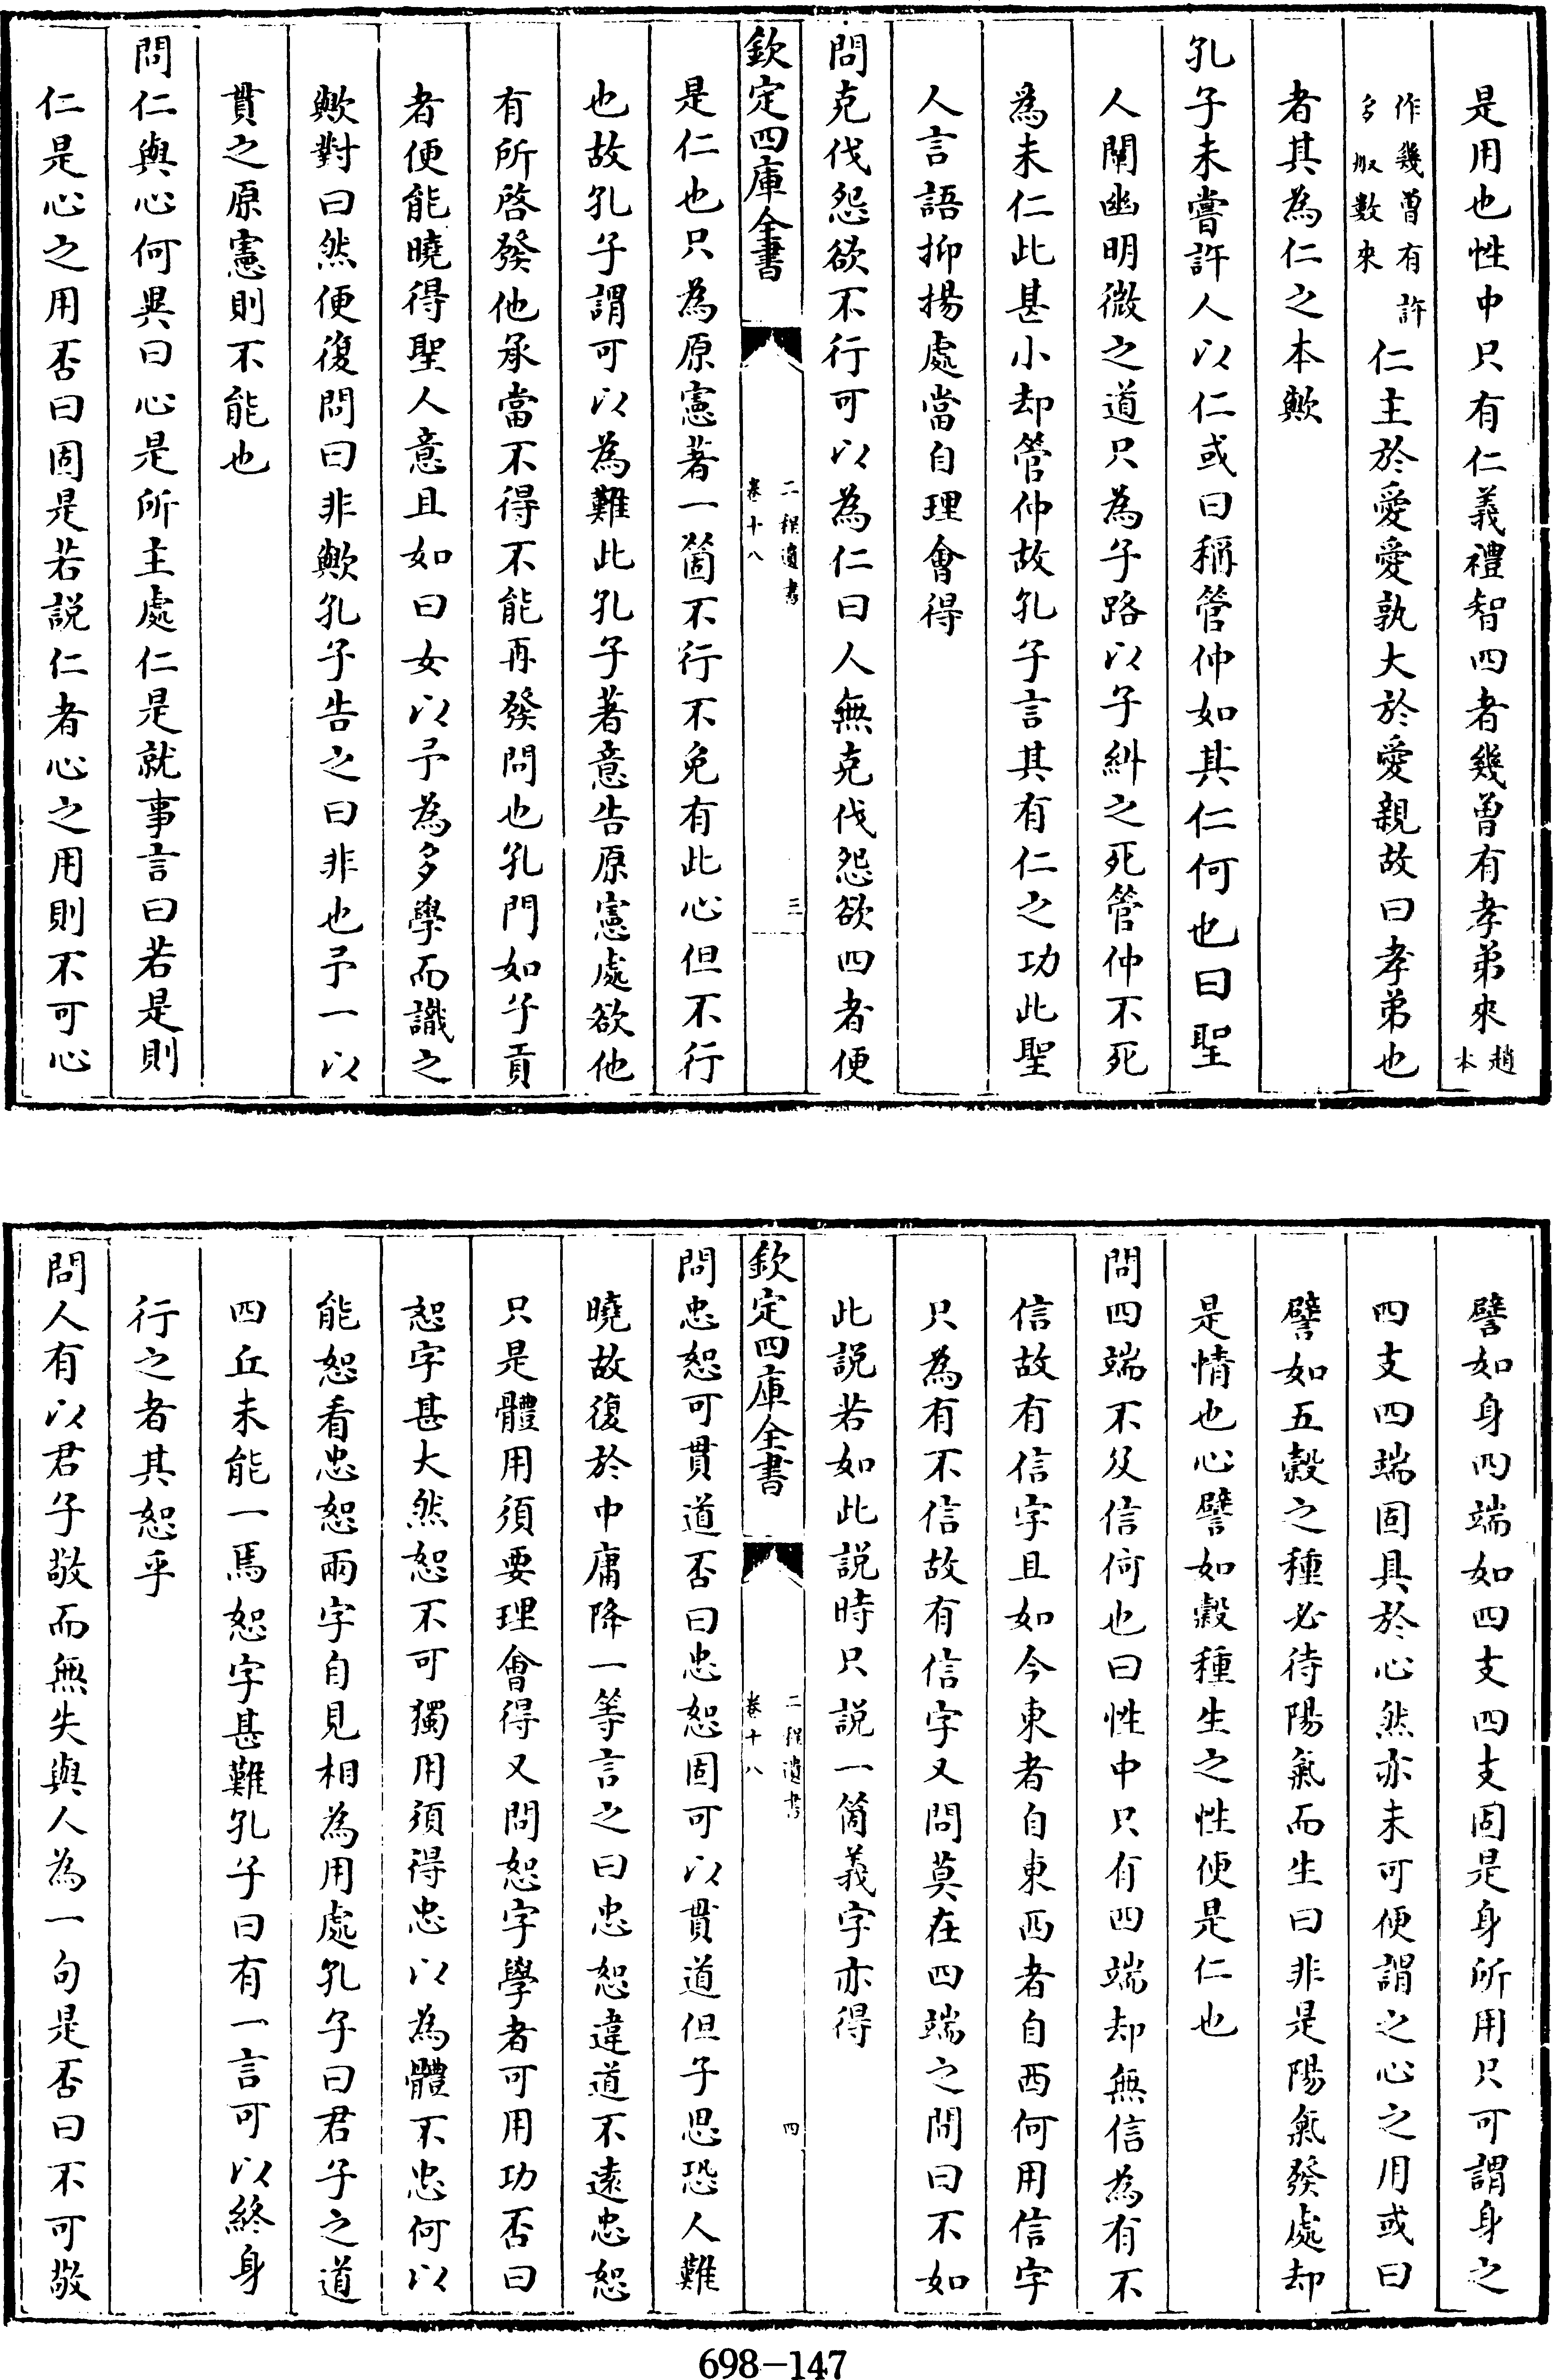 是用也性中只有仁義禮智四者幾曾有孝弟來趙本
作幾曾有許多般數來仁主於愛愛孰大於愛親故曰孝弟也
者其為仁之本歟
孔子未嘗許人以仁或曰稱管仲如其仁何也曰聖
人闡幽明微之道只為子路以子糾之死管仲不死
為未仁此甚小却管仲故孔子言其有仁之功此聖
人言語抑揚處當自理會得
問克伐怨欲不行可以為仁曰人無克伐怨欲四者便
欽定四庫全書
二程遺書
卷十八
三
是仁也只為原憲著一箇不行不免有此心但不行
也故孔子謂可以為難此孔子著意告原憲處欲他
有所啓發他承當不得不能再發問也孔門如子貢
者便能曉得聖人意且如曰女以予為多學而識之
歟對曰然便復問曰非歟孔子告之曰非也予一以
貫之原憲則不能也
問仁與心何異曰心是所主處仁是就事言曰若是則
仁是心之用否曰固是若說仁者心之用則不可心
譬如身四端如四支四支固是身所用只可謂身之
四支四端固具於心然亦未可便謂之心之用或曰
譬如五穀之種必待陽氣而生曰非是陽氣發處却
是情也心譬如穀種生之性便是仁也
問四端不及信何也曰性中只有四端却無信為有不
信故有信字且如今東者自東西者自西何用信字
只為有不信故有信字又問莫在四端之間曰不如
此說若如此說時只說一箇義字亦得
欽定四庫全書
二程遺書
卷十八
四
問忠恕可貫道否曰忠恕固可以貫道但子思恐人難
曉故復於中庸降一等言之曰忠恕違道不遠忠恕
只是體用須要理會得又問恕字學者可用功否曰
恕字甚大然恕不可獨用須得忠以為體不忠何以
能恕看忠恕兩字自見相為用處孔子曰君子之道
四丘未能一焉恕字甚難孔子曰有一言可以終身
行之者其恕乎
問人有以君子敬而無失與人為一句是否曰不可敬
698-147